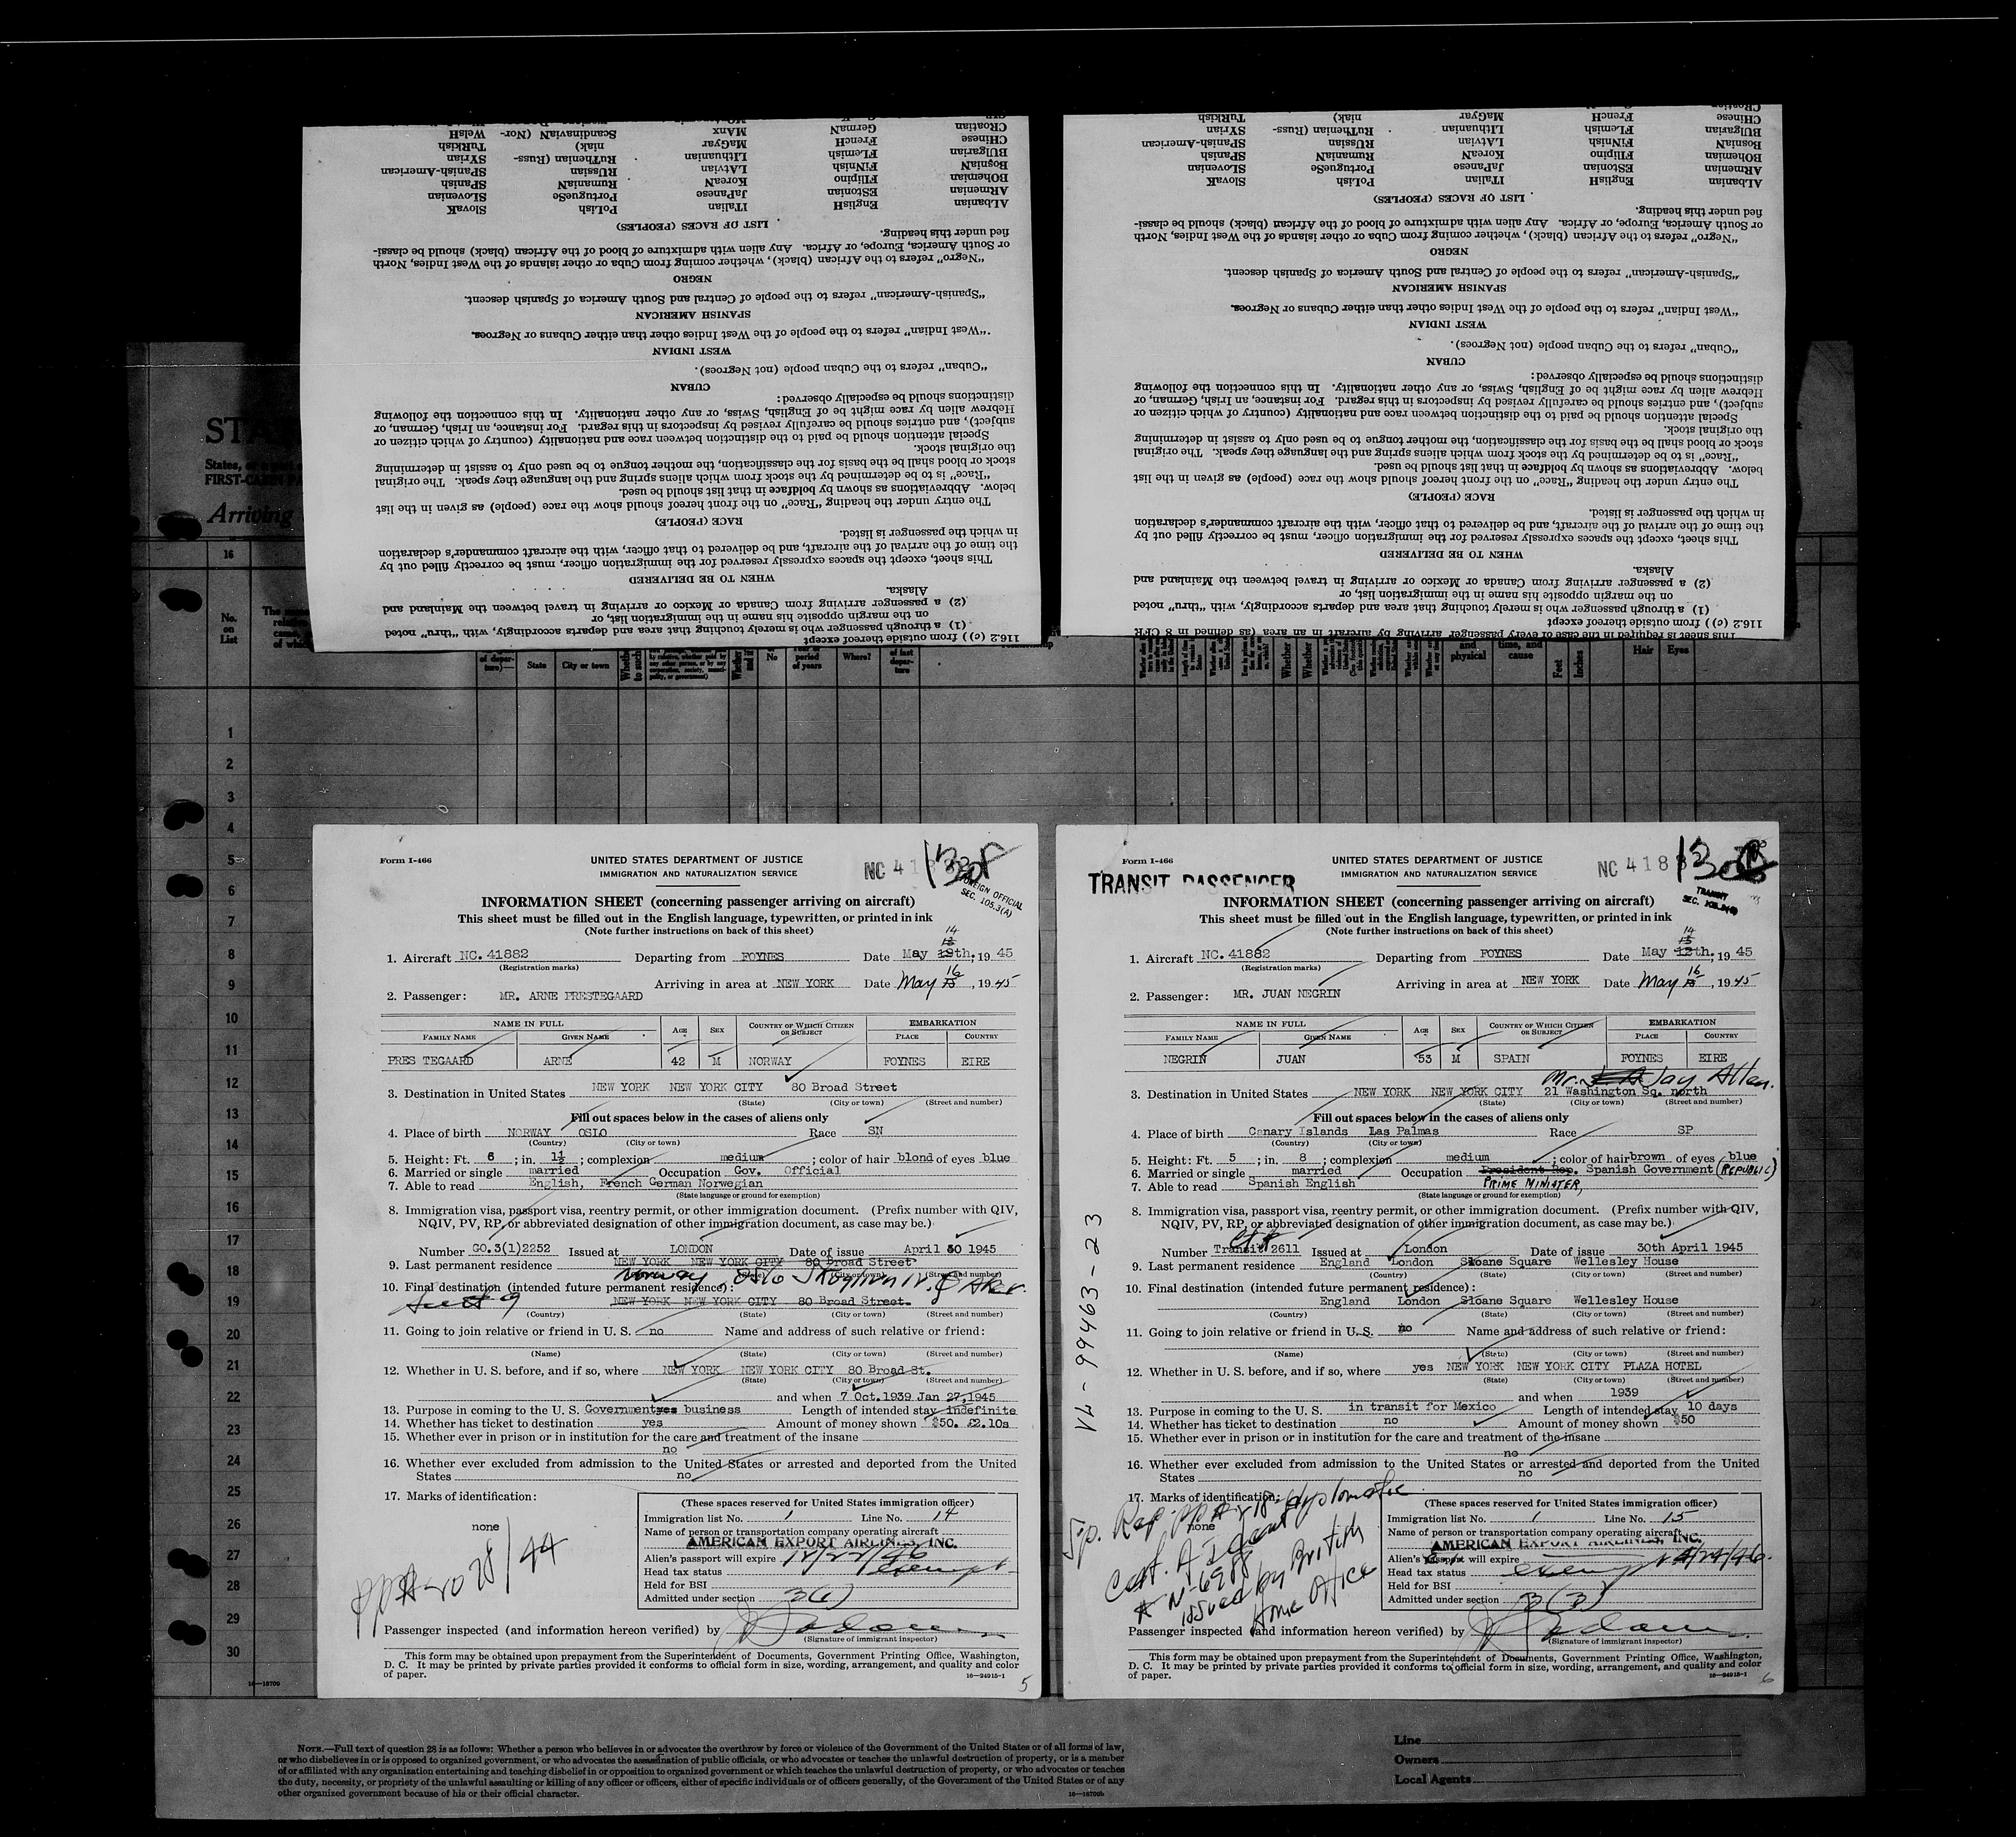 116.2 (c)) from outside thereof except
(1) a through passenger who is merely touching that area and departs accordingly, with "thru" noted
on the margin opposite his name in the immigration list, or
(2) a passenger arriving from Canada or Mexico or arriving in travel between the Mainland and
Alaska.
WHEN TO BE DELIVERED
This sheet, except the spaces expressly reserved for the immigration officer, must be correctly filled out by
the time of the arrival of the aircraft, and be delivered to that officer, with the aircraft commander's declaration
in which the passenger is listed.
RACE (PEOPLE)
The entry under the heading "Race" on the front hereof should show the race (people) as given in the list
below. Abbreviations as shown by boldface in that list should be used.
"Race" is to be determined by the stock from which aliens spring and the language they speak. The original
stock or blood shall be the basis for the classification, the mother tongue to be used only to assist in determining
the original stock.
Special attention should be paid to the distinction between race and nationality (country of which citizen or
subject), and entries should be carefully revised by inspectors in this regard. For instance, an Irish, German, or
Hebrew alien by race might be of English, Swiss, or any other nationality. In this connection the following
distinctions should be especially observed:
CUBAN
"Cuban" refers to the Cuban people (not Negroes).
WEST INDIAN
"West Indian" refers to the people of the West Indies other than either Cubans or Negroes.
SPANISH AMERICAN
"Spanish-American" refers to the people of Central and South America of Spanish descent.
NEGRO
"Negro" refers to the African (black), whether coming from Cuba or other islands of the West Indies, North
or South America, Europe, or Africa. Any alien with admixture of blood of the African (black) should be classi-
fied under this heading.
LIST OF RACES (PEOPLES)
ALbanian EnglisH ITALian PoLish SlovaK
ARmenian EStonian JaPanese PortugueSe SLOvenian
BOhemian FIlipino KoreaN RumaniaN SPanish
BosniaN FINnish LAtvian RUssian SPanish-American
BUlgarian FLemish LIthuanian RuThenian (Russ- SYrian
CHinese FrencH MaGyar niak) TuRkish
CRoatian GermaN MAnx ScandinaviaN (Nor- WelsH
This sheet is required in the case of every passenger arriving by aircraft in an area (as defined in 8 CFR
116.2 (c)) from outside thereof except
(1) a through passenger who is merely touching that area and departs accordingly, with "thru" noted
on the margin opposite his name in the immigration list, or
(2) a passenger arriving from Canada or Mexico or arriving in travel between the Mainland and
Alaska.
WHEN TO BE DELIVERED
This sheet, except the spaces expressly reserved for the immigration officer, must be correctly filled out by
the time of the arrival of the aircraft, and be delivered to that officer, with the aircraft commander's declaration
in which the passenger is listed.
RACE (PEOPLE)
The entry under the heading "Race" on the front hereof should show the race (people) as given in the list
below. Abbreviations as shown by boldface in that list should be used.
"Race" is to be determined by the stock from which aliens spring and the language they speak. The original
stock or blood shall be the basis for the classification, the mother tongue to be used only to assist in determining
the original stock.
Special attention should be paid to the distinction between race and nationality (country of which citizen or
subject), and entries should be carefully revised by inspectors in this regard. For instance, an Irish, German, or
Hebrew alien by race might be of English, Swiss, or any other nationality. In this connection the following
distinctions should be especially observed:
CUBAN
"Cuban" refers to the Cuban people (not Negroes).
WEST INDIAN
"West Indian" refers to the people of the West Indies other than either Cubans or Negroes.
SPANISH AMERICAN
"Spanish-American" refers to the people of Central and South America of Spanish descent.
NEGRO
"Negro" refers to the African (black), whether coming from Cuba or other islands of the West Indies, North
or South America, Europe, or Africa. Any alien with admixture of blood of the African (black) should be classi-
fied under this heading.
LIST OF RACES (PEOPLES)
ALbanian EnglisH ITALian PoLish SlovaK
ARmenian EStonian JaPanese PortugueSe SLOvenian
BOhemian FIlipino KoreaN RumaniaN SPanish
BosniaN FINnish LAtvian RUssian SPanish-American
BUlgarian FLemish LIthuanian RuThenian (Russ- SYrian
CHinese FrencH MaGyar niak) TuRkish
CRoatian
STA
States,
FIRST-CA
Arriving
16
No. on List
of depar- ture)—
State
City or town
No
period of years
Where?
of last depar- ture
and physical
time, and cause
Feet
Inches
Hair
Eyes
1
2
3
4
5
6
7
8
9
10
11
12
13
14
15
16
17
18
19
20
21
22
23
24
25
26
27
28
29
30
Form I-466
UNITED STATES DEPARTMENT OF JUSTICE
IMMIGRATION AND NATURALIZATION SERVICE
NC 418
FOREIGN OFFICIAL
SEC. 105.3(A)
INFORMATION SHEET (concerning passenger arriving on aircraft)
This sheet must be filled out in the English language, typewritten, or printed in ink
(Note further instructions on back of this sheet)
14
13
1. Aircraft NC. 41882 Departing from FOYNES Date May 12th, 19 45
(Registration marks)
16
Arriving in area at NEW YORK Date May 13, 1945
2. Passenger: MR. ARNE PRESTEGAARD
NAME IN FULL AGE SEX COUNTRY OF WHICH CITIZEN OR SUBJECT EMBARKATION
FAMILY NAME GIVEN NAME PLACE COUNTRY
PRES TEGAARD ARNE 42 M NORWAY FOYNES EIRE
3. Destination in United States NEW YORK NEW YORK CITY 80 Broad Street
(State) (City or town) (Street and number)
Fill out spaces below in the cases of aliens only
4. Place of birth NORWAY OSLO Race SN
(Country) (City or town)
5. Height: Ft. 6; in. 1½; complexion medium; color of hair blond of eyes blue
6. Married or single married Occupation Gov. Official
7. Able to read English, French German Norwegian
(State language or ground for exemption)
8. Immigration visa, passport visa, reentry permit, or other immigration document. (Prefix number with QIV,
NQIV, PV, RP, or abbreviated designation of other immigration document, as case may be.)
Number GO.3(1)2252 Issued at LONDON Date of issue April 30 1945
9. Last permanent residence NEW YORK NEW YORK CITY 80 Broad Street
Norway, Oslo
10. Final destination (intended future permanent residence):
NEW YORK NEW YORK CITY 80 Broad Street.
(Country) (State) (City or town) (Street and number)
11. Going to join relative or friend in U. S. no Name and address of such relative or friend:
(Name) (State) (City or town) (Street and number)
12. Whether in U. S. before, and if so, where NEW YORK NEW YORK CITY 80 Broad St.
(State) (City or town) (Street and number)
and when 7 Oct.1939 Jan 27,1945
13. Purpose in coming to the U. S. Government business Length of intended stay indefinite
14. Whether has ticket to destination yes Amount of money shown $50. £2.10s
15. Whether ever in prison or in institution for the care and treatment of the insane
no
16. Whether ever excluded from admission to the United States or arrested and deported from the United
States no
17. Marks of identification:
none
28/44
(These spaces reserved for United States immigration officer)
Immigration list No. 1 Line No. 14
Name of person or transportation company operating aircraft
AMERICAN EXPORT AIRLINES, INC.
Alien's passport will expire 12/22/46
Head tax status exempt
Held for BSI
Admitted under section 3(1)
Passenger inspected (and information hereon verified) by
(Signature of immigrant inspector)
This form may be obtained upon prepayment from the Superintendent of Documents, Government Printing Office, Washington,
D. C. It may be printed by private parties provided it conforms to official form in size, wording, arrangement, and quality and color
of paper.
16—24915-1
5
Form I-466
UNITED STATES DEPARTMENT OF JUSTICE
IMMIGRATION AND NATURALIZATION SERVICE
NC 4188
TRANSIT PASSENGER
TRANSIT
INFORMATION SHEET (concerning passenger arriving on aircraft)
This sheet must be filled out in the English language, typewritten, or printed in ink
(Note further instructions on back of this sheet)
14
13
1. Aircraft NC. 41882 Departing from FOYNES Date May 12th, 19 45
(Registration marks)
16
Arriving in area at NEW YORK Date May 13, 1945
2. Passenger: MR. JUAN NEGRIN
NAME IN FULL AGE SEX COUNTRY OF WHICH CITIZEN OR SUBJECT EMBARKATION
FAMILY NAME GIVEN NAME PLACE COUNTRY
NEGRIN JUAN 53 M SPAIN FOYNES EIRE
Mr. Jay Allen.
3. Destination in United States NEW YORK NEW YORK CITY 21 Washington Sq. north
(State) (City or town) (Street and number)
Fill out spaces below in the cases of aliens only
4. Place of birth Canary Islands Las Palmas Race SP
(Country) (City or town)
5. Height: Ft. 5; in. 8; complexion medium; color of hair brown of eyes blue
6. Married or single married Occupation President Rep. Spanish Government (REPUBLIC)
7. Able to read Spanish English PRIME MINISTER,
(State language or ground for exemption)
8. Immigration visa, passport visa, reentry permit, or other immigration document. (Prefix number with QIV,
NQIV, PV, RP, or abbreviated designation of other immigration document, as case may be.)
Number Transit 2611 Issued at London Date of issue 30th April 1945
9. Last permanent residence England London Sloane Square Wellesley House
(Country) (City or town) (State) (Street and number)
10. Final destination (intended future permanent residence):
England London Sloane Square Wellesley House
(Country) (State) (City or town) (Street and number)
11. Going to join relative or friend in U. S. no Name and address of such relative or friend:
(Name) (State) (City or town) (Street and number)
12. Whether in U. S. before, and if so, where yes NEW YORK NEW YORK CITY PLAZA HOTEL
(State) (City or town) (Street and number)
and when 1939
13. Purpose in coming to the U. S. in transit for Mexico Length of intended stay 10 days
14. Whether has ticket to destination no Amount of money shown $50
15. Whether ever in prison or in institution for the care and treatment of the insane
no
16. Whether ever excluded from admission to the United States or arrested and deported from the United
States no
17. Marks of identification:
none
Sp. Rep. pp # 218 diplomatic
Cert. of Ident
# N-6988
issued by British
Home Office
VL-99463-23
(These spaces reserved for United States immigration officer)
Immigration list No. 1 Line No. 15
Name of person or transportation company operating aircraft
AMERICAN EXPORT AIRLINES, INC.
Alien's passport will expire 4/24/46.
Head tax status exempt
Held for BSI
Admitted under section 3(3)
Passenger inspected (and information hereon verified) by
(Signature of immigrant inspector)
This form may be obtained upon prepayment from the Superintendent of Documents, Government Printing Office, Washington,
D. C. It may be printed by private parties provided it conforms to official form in size, wording, arrangement, and quality and color
of paper.
16—24915-1
6
16—18709
NOTE.—Full text of question 28 is as follows: Whether a person who believes in or advocates the overthrow by force or violence of the Government of the United States or of all forms of law,
or who disbelieves in or is opposed to organized government, or who advocates the assassination of public officials, or who advocates or teaches the unlawful destruction of property, or is a member
of or affiliated with any organization entertaining and teaching disbelief in or opposition to organized government or which teaches the unlawful destruction of property, or who advocates or teaches
the duty, necessity, or propriety of the unlawful assaulting or killing of any officer or officers, either of specific individuals or of officers generally, of the Government of the United States or of any
other organized government because of his or their official character.
16—18709b
Line
Owners
Local Agents